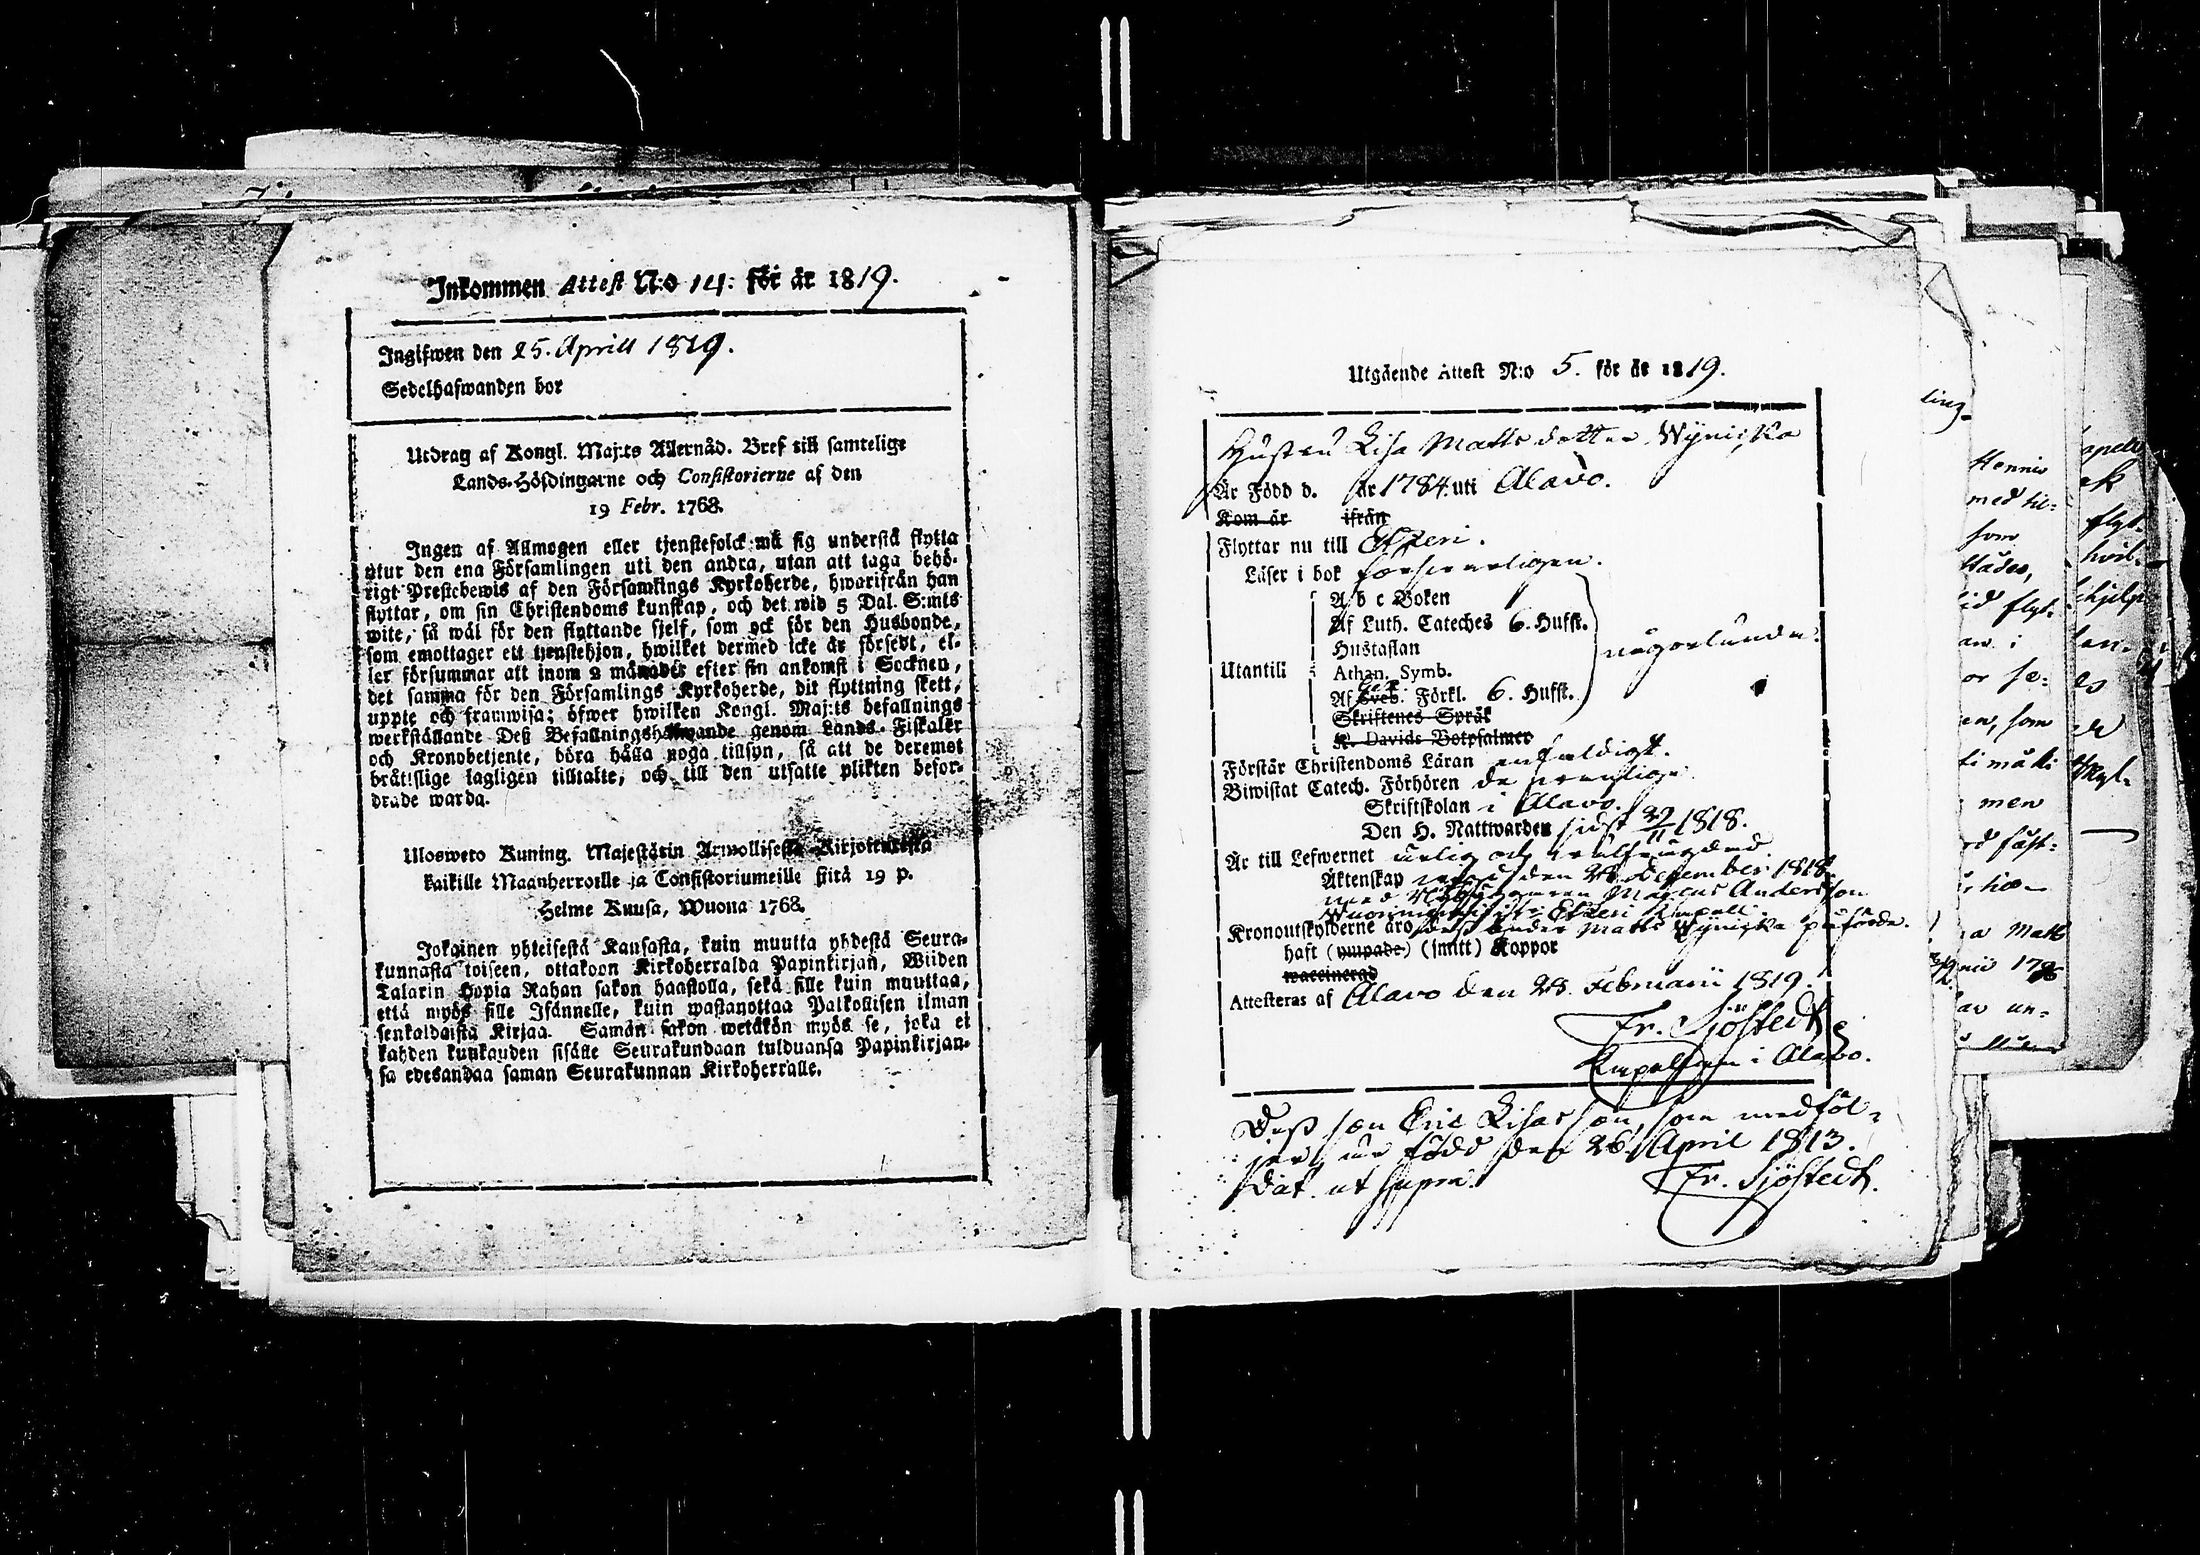 Inkommen Attest N:o 14. för år 1819.
Ingifwen den 25. Aprill 1819.
Sedelhafwanden bor
Utdrag af Kongl. Maj:ts Allernåd. Bref till samtelige
Lands-Höfdingarne och Consistorierne af den
19 Febr. 1768.
Ingen af Allmogen eller tjenstefolck må sig understå flytta
utur den ena Församlingen uti den andra, utan att taga behö-
rigt Prestebewis af den Församlings Kyrkoherde, hwarifrån han
flyttar, om sin Christendoms kunskap, och det wid 5 Dal. S:mts
wite, så wäl för den flyttande sjelf, som ock för den Husbonde,
som emottager ett tjenstehjon, hwilket dermed icke är försedt, el-
ler försummar att inom 2 månader efter sin ankomst i Socknen,
det samma för den Församlings Kyrkoherde, dit flyttning skett,
uppte och framwisa; öfwer hwilken Kongl. Maj:ts befallnings
werkställande Deß Befallningshafwande genom Lands-Fiskaler
och Kronobetjente, böra hålla noga tillsyn, så att de deremot
brätslige lagligen tilltalte, och till den utsatte plikten befor-
drade warda.
Ulosweto Kuning. Majestätin Armollisesta Kirjoituksesta
kaikille Maanherroille ja Consistoriumeille siitä 19 p.
Helme Kuusa, Wuona 1768.
Jokainen yhteisestä Kansasta, kuin muutta yhdestä Seura-
kunnasta toiseen, ottakoon Kirkoherralda Papinkirjan, Wiiden
Talarin Hopia Rahan sakon haastolla, sekä sille kuin muuttaa,
että myös sille Isännelle, kuin wastanottaa Palkollisen ilman
senkaldaista Kirjaa. Samän sakon wetäkön myös se, joka ei
kahden kuukauden sisälle Seurakundaan tulduansa Papinkirjan-
sa edesandaa saman Seurakunnan Kirkoherralle.
Utgående Attest N:o 5. för år 1819.
Hustru Lisa Matts dotter Wyniska
Är Född d. år 1784. uti Alavo.
Kom år ifrån
Flyttar nu till Etzeri.
Läser i bok försvarligen.
A b c Boken
Af Luth. Cateches 6. Hufst.
Hustaflan någorlunda.
Utantill Athan. Symb.
Af Sveb. Förkl. 6. Hufst.
Skriftenes Språk
K. Davids Botpsalmer
Förstår Christendoms Läran enfaldigt.
Biwistat Catech. Förhören de vanliga
Skriftskolan i Alavo.
Den H. Nattwarden sidst 29/11 1818.
Är till Lefwernet ärlig och välfrägdad
Äktenskap den 26 December 1818
med Marcus Andersson
Etzeri Capell.
Kronoutskylderne äro under Matts Wyniska påförde.
haft (ympade) (smitt) Koppor
waccinerad
Attesteras af Alavo den 28. Februarii 1819.
Fr. Sjöstedt
Capellan i Alavo.
Dess son Eric Lisasson, som medföl-
jer, är född den 26. April 1813.
Dat. ut supra.
Fr. Sjöstedt.